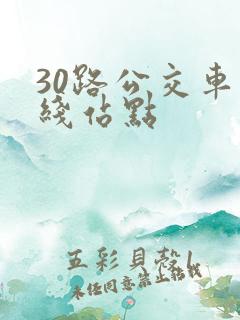 30路公交車
綫佔點
五彩貝殼/
未经同意禁止转载